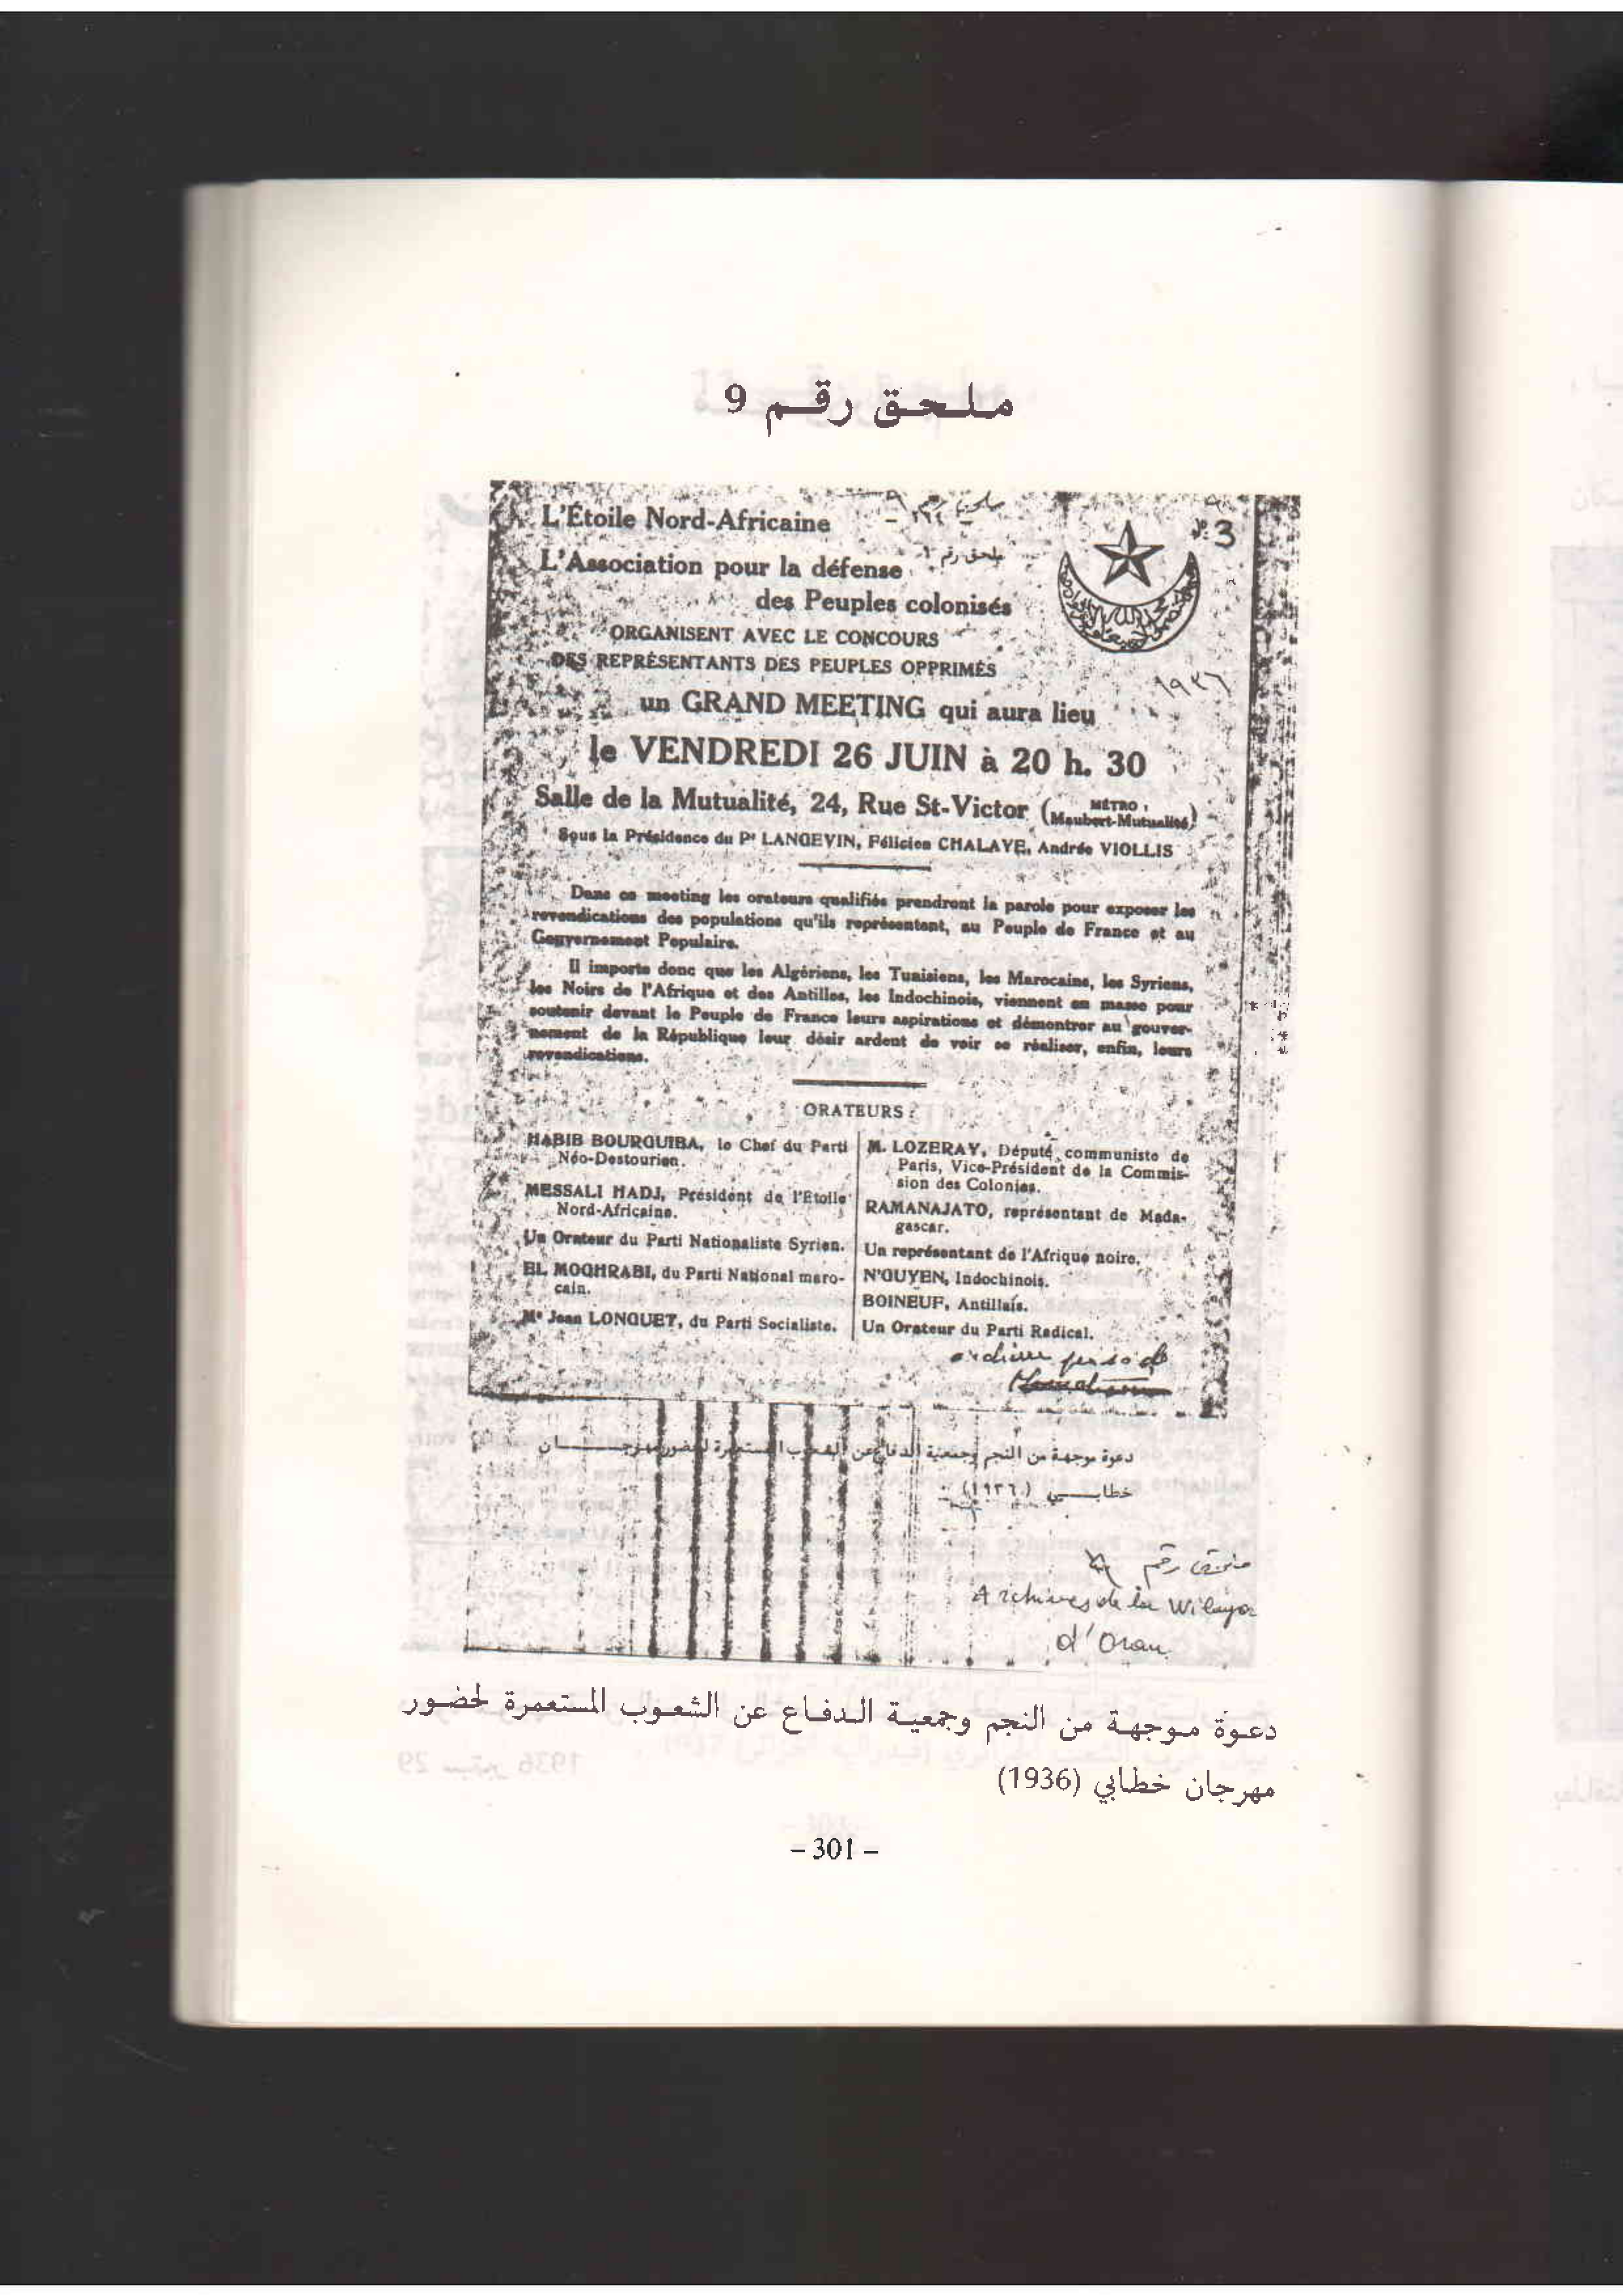 ملحق رقم 9
L'Étoile Nord-Africaine
ملحق رقم
№ 3
L'Association pour la défense
ملحق رقم
des Peuples colonisés
ORGANISENT AVEC LE CONCOURS
DES REPRÉSENTANTS DES PEUPLES OPPRIMÉS
١٩٣٦
un GRAND MEETING qui aura lieu
le VENDREDI 26 JUIN à 20 h. 30
Salle de la Mutualité, 24, Rue St-Victor (MÉTRO : Maubert-Mutualité)
Sous la Présidence du Pr LANGEVIN, Félicien CHALAYE, Andrée VIOLLIS
Dans ce meeting les orateurs qualifiés prendront la parole pour exposer les
revendications des populations qu'ils représentent, au Peuple de France et au
Gouvernement Populaire.
Il importe donc que les Algériens, les Tunisiens, les Marocains, les Syriens,
les Noirs de l'Afrique et des Antilles, les Indochinois, viennent en masse pour
soutenir devant le Peuple de France leurs aspirations et démontrer au gouver-
nement de la République leur désir ardent de voir se réaliser, enfin, leurs
revendications.
ORATEURS :
HABIB BOURGUIBA, le Chef du Parti
Néo-Destourien.
MESSALI HADJ, Président de l'Etoile
Nord-Africaine.
Un Orateur du Parti Nationaliste Syrien.
EL MOGHRABI, du Parti National maro-
cain.
Me Jean LONGUET, du Parti Socialiste.
M. LOZERAY, Député communiste de
Paris, Vice-Président de la Commis-
sion des Colonies.
RAMANAJATO, représentant de Mada-
gascar.
Un représentant de l'Afrique noire.
N'GUYEN, Indochinois.
BOINEUF, Antillais.
Un Orateur du Parti Radical.
archive perso de
دعوة موجهة من النجم وجمعية الدفاع عن الشعوب المستعمرة لحضور مهرجـــــان
خطابـــي (١٩٣٦)
ملحق رقم
Archives de la Wilaya
d'Oran
دعوة موجهة من النجم وجمعية الدفاع عن الشعوب المستعمرة لحضور
مهرجان خطابي (1936)
– 301 –